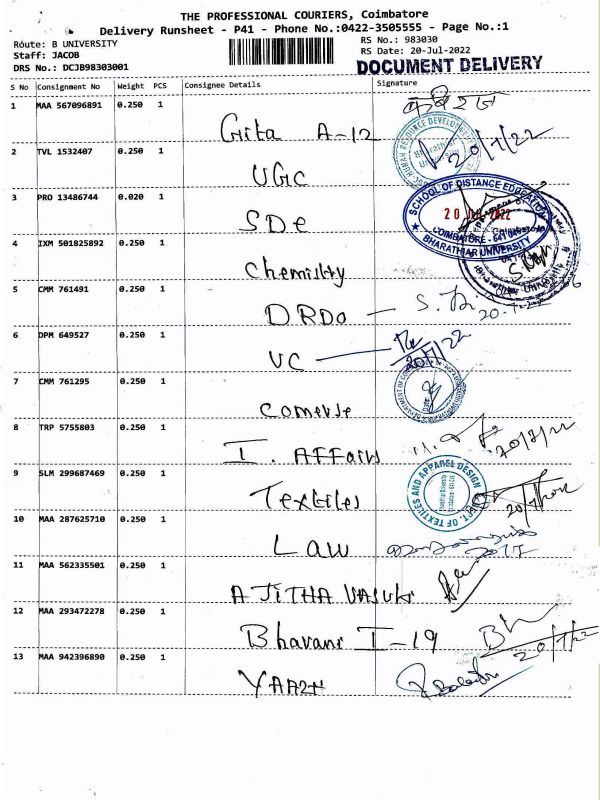 THE PROFESSIONAL COURIERS, Coimbatore
Delivery Runsheet - P41 - Phone No.:0422-3505555 - Page No.:1
Route: B UNIVERSITY
RS No.: 983030
Staff: JACOB
RS Date: 20-Jul-2022
DRS No.: DCJB98303001
DOCUMENT DELIVERY
S No Consignment No Weight PCS Consignee Details Signature
1 MAA 567096891 0.250 1
Gita A-12
2 TVL 1532407 0.250 1
20/7/22
UGC
3 PRO 13486744 0.020 1
SDE
SCHOOL OF DISTANCE EDUCATION
20 JUL 2022
COIMBATORE - 641 046
BHARATHIAR UNIVERSITY
4 IXM 501825892 0.250 1
Chemistry
5 CMM 761491 0.250 1
DRDO
20-7-22
6 DPM 649527 0.250 1
UC
20/7/22
7 CMM 761295 0.250 1
Comerse
8 TRP 5755803 0.250 1
I. AFFairs
20/7/22
9 SLM 299687469 0.250 1
Textiles
DEPT. OF TEXTILES AND APPAREL DESIGN
20/7/2022
10 MAA 287625710 0.250 1
LAW
11 MAA 562335501 0.250 1
AJITHA VASUKI
12 MAA 293472278 0.250 1
Bhavani I-19
20/7/22
13 MAA 942396890 0.250 1